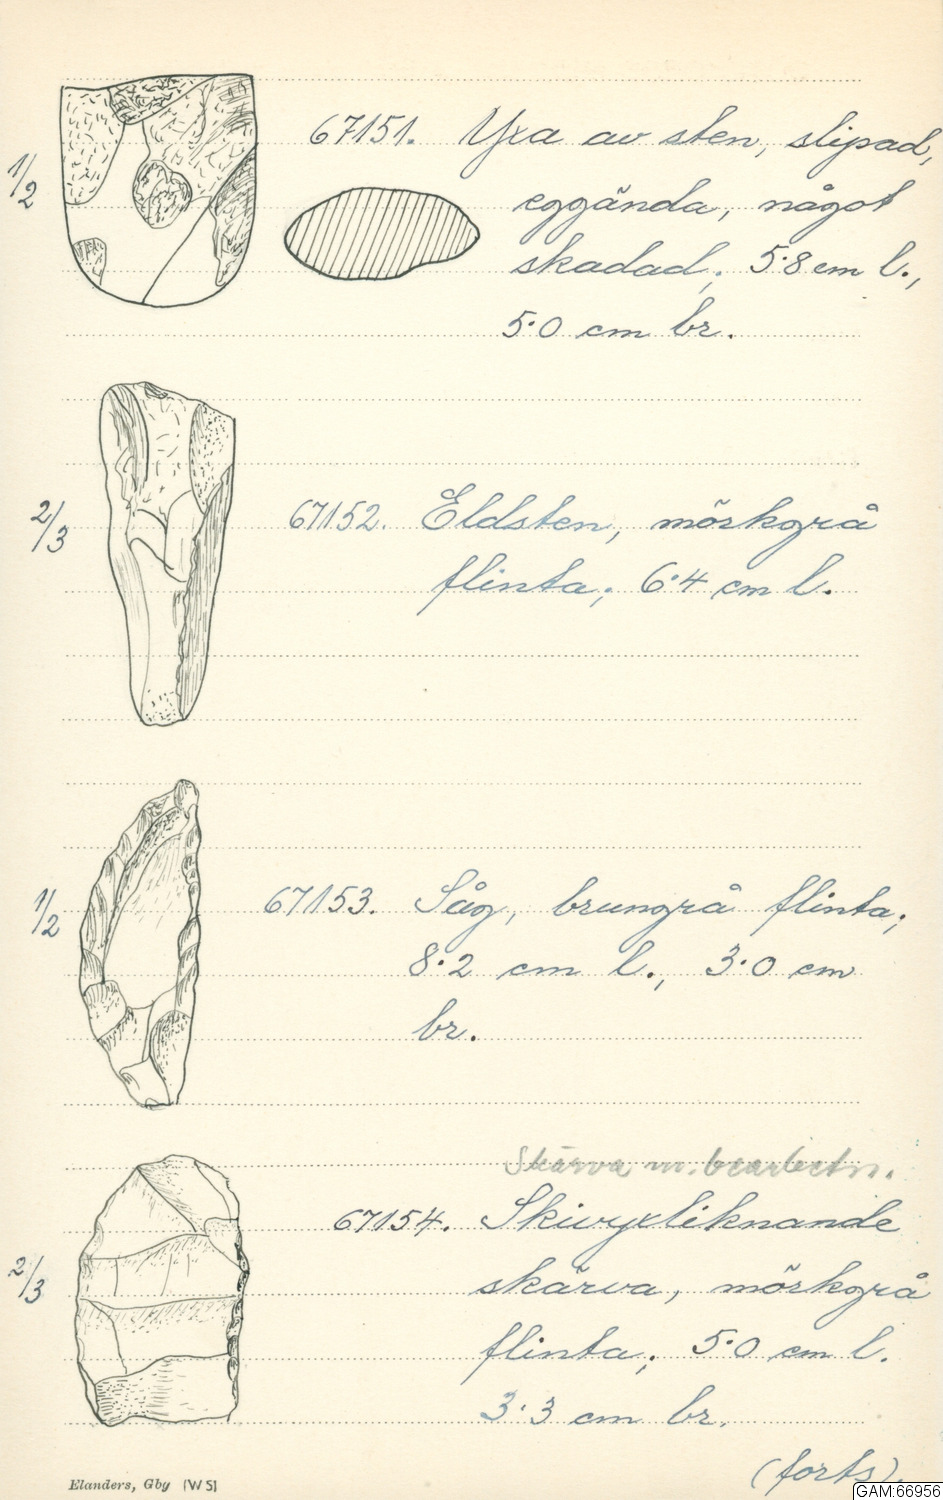 1/2
67151. Yxa av sten, slipad,
eggända, något
skadad; 5·8 cm l.,
5·0 cm br.
2/3
67152. Eldsten, mörkgrå
flinta; 6·4 cm l.
1/2
67153. Såg, brungrå flinta;
8·2 cm l., 3·0 cm
br.
Skärva m. bearbetn.
2/3
67154. Skivyxliknande
skärva, mörkgrå
flinta; 5·0 cm l.
3·3 cm br.
(forts).
Elanders, Gby (W5)
GAM:66956